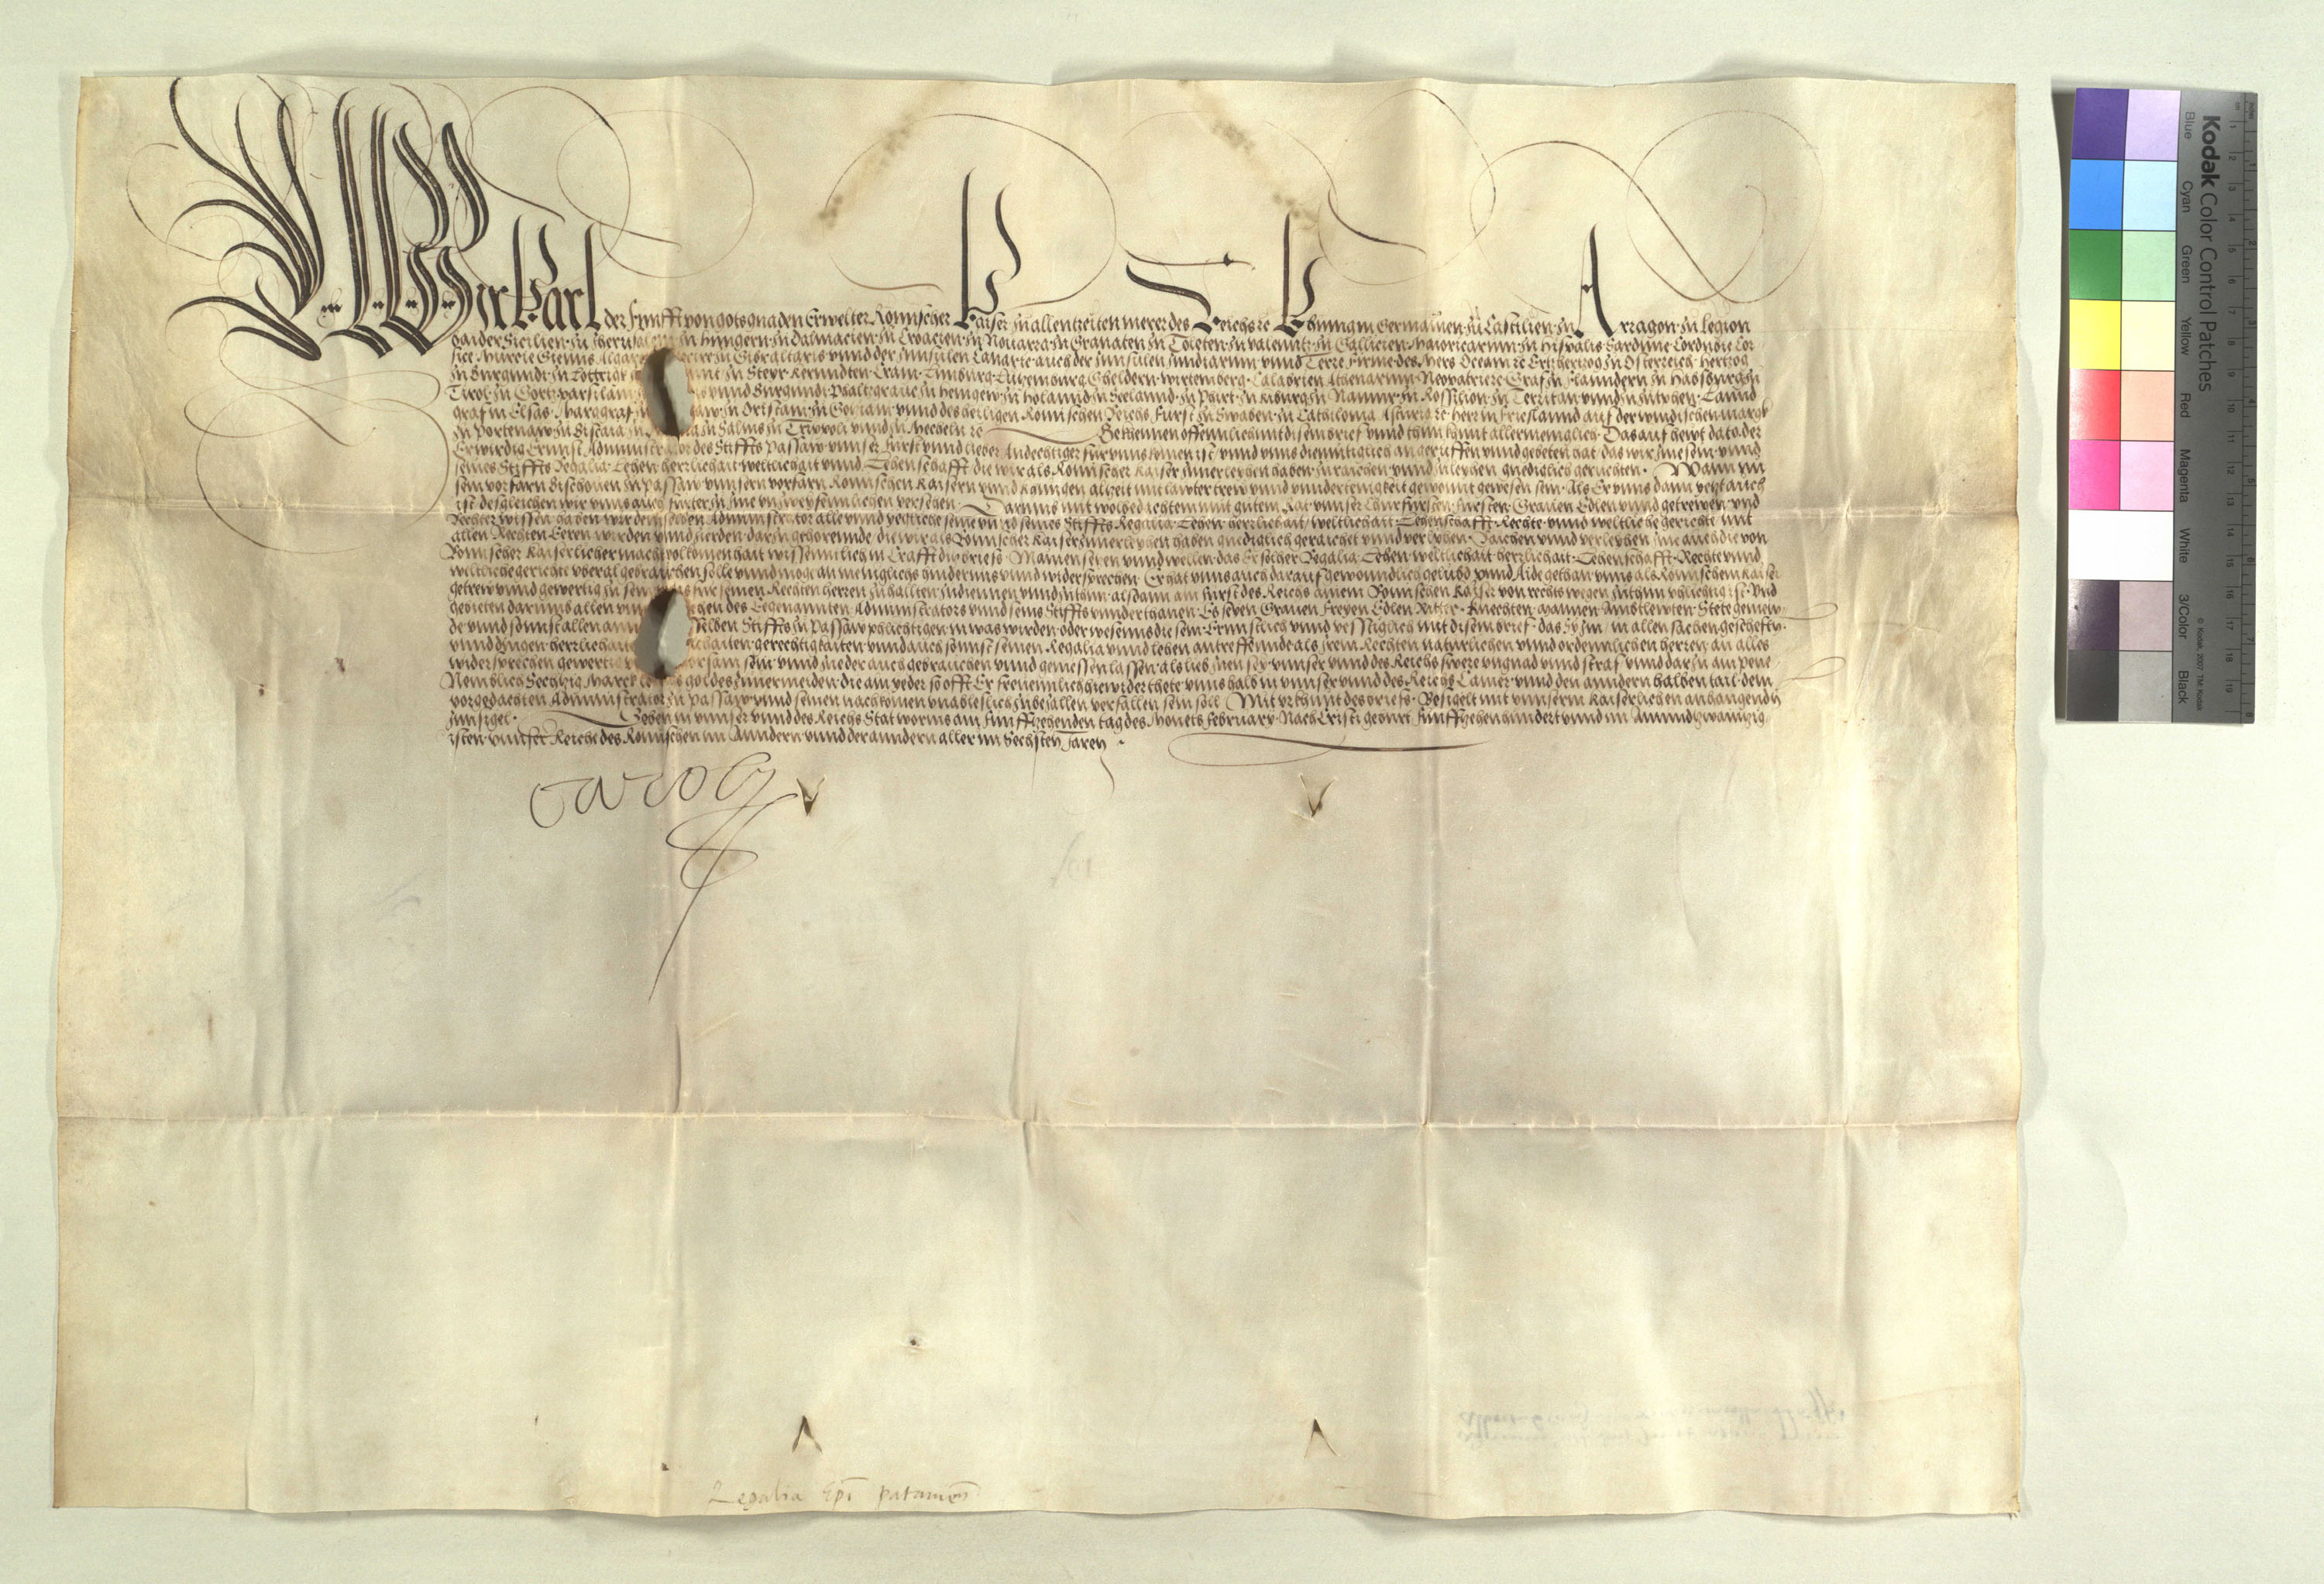 Wir Karl der Funfft von gots gnaden Erwelter Romischer Kaiser zu allentzeiten merer des Reichs ꝛc Khunig in Germanien · zu Castilien · zu Arragon · zu Legion
baider Sicilien · zu Iherusalem zu Hungern · zu Dalmacien · zu Croacien · zu Nouarra · zu Granaten zu Toleten · zu valentz · zu Gallicien · Maioricarum · zu Hispalis · Sardinie · Cordubie Cor
sice · Murcie Giennis Algar Gibraltaris vnnd der Innsulen Canarie · auch der Innsulen Inndiarum · vnnd Terre Firme · des Mers Oceani ꝛc Ertzhertzog zu Osterreich · Hertzog
zu Burgundi · zu Lottrigk zu Steyr · Kernndten · Crain · Limburg · Lutzemburg · Gheldern · wirtemberg · Calabrien Athenarum · Neopatrie ꝛc Graf zu Flanndern zu Habsburg zu
Tirol · zu Gortz parsilan vnnd Burgundi · Phaltzgraue zu Henigew · zu Holannd zu Seelannd · zu Phirt · zu Kiburg zu Namur · zu Rossilion · zu Territan · vnnd zu Zutphen · Lannd
graf in Elsas · Marggraf zu zu Oristani · zu Gociani · vnnd des heiligen Romischen Reichs Furst zu Swaben · zu Cathilonia Asturia ꝛc · herr in Frieslannd auf der windischen march
zu Portenaw · zu Biscaia zu zu Salins zu Tripoli vnnd zu Mecheln ꝛc Bekhennen offennlich mit disem brief vnnd thun khunt allermeniglich · Das auf hewt dato · der
Erwirdig Ernnst Administrator des Stiffts Passaw vnnser Furst vnnd lieber Anndechtiger fur vnns komen ist vnnd vnns diemutiglich angeruffen vnnd gebeten hat · das wir Ime sein · vnnd
seines Stiffts Regalia · Lehen herrlichait weltlichait vnnd Lehenschafft die wir als Romischer Kaiser zuuerleyhen haben · zu raichen · vnnd zuleyhen gnediglich geruchten · Wann nu
sein vorfarn Bischouen zu Passaw vnnsern vorfarn Romischen Kaisern vnnd Khunigen altzeit mit lawter trew vnnd vnndertenigkeit gewonnt gewesen sein · Als Er vnns dann yetzt auch
ist desgleichen wir vnns auch furter zu Ime vntzweyfennlichen versehen · Darumb mit wolbedachtem mut gutem Rat vnnser Churfursten · Fursten · Grauen Edlen vnnd getrewen · vnd
Rechter wissen haben wir demselben Administrator alle vnnd yegliche seine vnnd seines Stiffts Regalia · Lehen · herrlichait / weltlichait · Lehenschafft · Rechte · vnnd weltliche gerichte mit
allen Rechten Eeren wirden vnnd zierden · dartzu gehorennde die wir als Romischer Kaiser zuuerleyhen haben gnediglich geraichet vnnd verlyhen · Raichen vnnd verleyhen Ime auch die von
Romischer Kaiserlicher macht volkomenhait wissenntlich in Crafft ditz briefs · Mainen setzen vnnd wellen · das Er solher Regalia · Lehen · weltlichait · herrlichait · Lehenschafft · Rechte vnnd
weltliche gerichte vberal gebrauchen solle vnnd moge an meniglichs hindernus vnnd widersprechen · Er hat vnns auch darauf gewonndlich gelubd vnnd Aide gethan · vnns als Romischem Kaiser
getrew vnnd gewertig zu sein vnns fur seinen Rechten herren zuhallten · zudiennen vnnd zuthun · als dann ain Furst des Reichs ainem Romischen Kaiser von rechts wegen zuthun phlichtig ist · Vnd
gebieten darumb allen vnnd des Eegenannten Administrators vnnd seins Stiffts vnnderthanen · Es seyen Grauen Freyen Edlen Ritter · Knechten · Mannen Ambtlewten · Stete gemew
de vnnd sonnst allen anndern selben Stiffts zu Passaw phlichtigen · in was wirden · oder wesenns die sein · Ernnstlich vnnd vesstiglich mit disem brief · das Sy Im / in allen sachen geschefftn ·
vnnd dingen · herrlichaiten gerechtigkaiten vnnd auch sonnst seinen Regalia vnnd lehen antreffennde als Irem Rechten naturlichen vnnd ordennlichen herren / an alles
widersprechen gewertig gehorsam sein · vnnd Ine der auch gebrauchen vnnd geniessen lassen · als lieb Inen sey · vnnser vnnd des Reichs swere vngnad vnnd straf · vnnd dartzu ain pene ·
Nemblich Sechtzig Marck lotigs goldes zuuermeiden · die ain yeder so offt Er freuenntlich hiewider thete · vnns halb in vnnser vnnd des Reichs Camer · vnnd den anndern halben tail · dem
vorgedachten Administrator zu Passaw vnnd seinen nachkomen vnableslich zubetzallen verfallen sein soll · Mit vrkhunt des briefs · Besigelt mit vnnserm Kaiserlichen anhangendn
Innsigel · Geben in vnnser vnnd des Reichs Stat Worms am Funfftzehenden tag des Monets February · Nach Cristi geburt Funffzehenhundert vnnd im Ainundtzwaintzig
isten · vnnser Reiche des Romischen im Anndern · vnnd der anndern aller im Sechsten Jaren ·
Carolus
Regalia Epi patauien
Kodak Color Control Patches
Blue Cyan Green Yellow Red Magenta White 3/Color Black
© Kodak, 2007 TM: Kodak